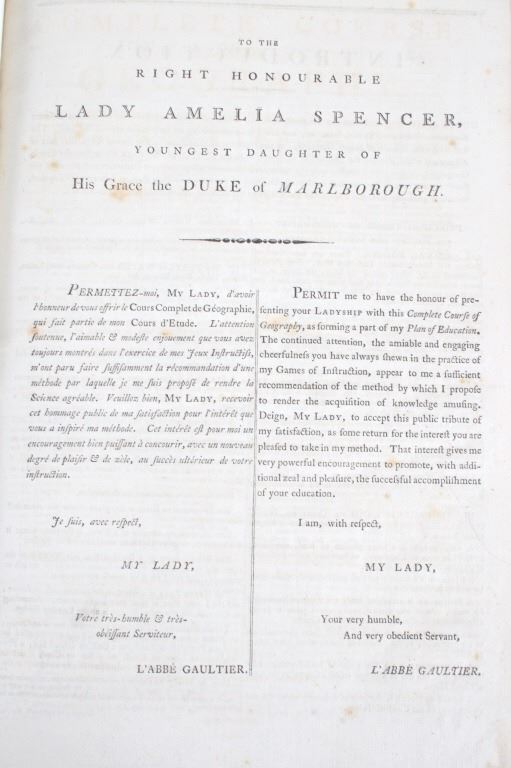 TO THE
RIGHT HONOURABLE
LADY AMELIA SPENCER,
YOUNGEST DAUGHTER OF
His Grace the DUKE of MARLBOROUGH.
PERMETTEZ-moi, MY LADY, d'avoir
l'honneur de vous offrir le Cours Complet de Géographie,
qui fait partie de mon Cours d'Etude. L'attention
ſoutenue, l'aimable & modeſte enjouement que vous avez
toujours montrés dans l'exercice de mes Jeux Inſtructifs,
m'ont paru faire ſuffiſamment la récommandation d'une
méthode par laquelle je me ſuis propoſé de rendre la
Science agréable. Veuillez bien, MY LADY, recevoir
cet hommage public de ma ſatisfaction pour l'intérêt que
vous a inſpiré ma méthode. Cet intérêt eſt pour moi un
encouragement bien puiſſant à concourir, avec un nouveau
degré de plaiſir & de zèle, au ſuccès ultérieur de votre
inſtruction.
Je ſuis, avec reſpect,
MY LADY,
Votre très-humble & très-
obéiſſant Serviteur,
L'ABBÉ GAULTIER.
PERMIT me to have the honour of pre-
ſenting your LADYSHIP with this Complete Courſe of
Geography, as forming a part of my Plan of Education.
The continued attention, the amiable and engaging
cheerfulneſs you have always ſhewn in the practice of
my Games of Inſtruction, appear to me a ſufficient
recommendation of the method by which I propoſe
to render the acquiſition of knowledge amuſing.
Deign, MY LADY, to accept this public tribute of
my ſatisfaction, as ſome return for the intereſt you are
pleaſed to take in my method. That intereſt gives me
very powerful encouragement to promote, with addi-
tional zeal and pleaſure, the ſucceſsful accompliſhment
of your education.
I am, with reſpect,
MY LADY,
Your very humble,
And very obedient Servant,
L'ABBÉ GAULTIER.